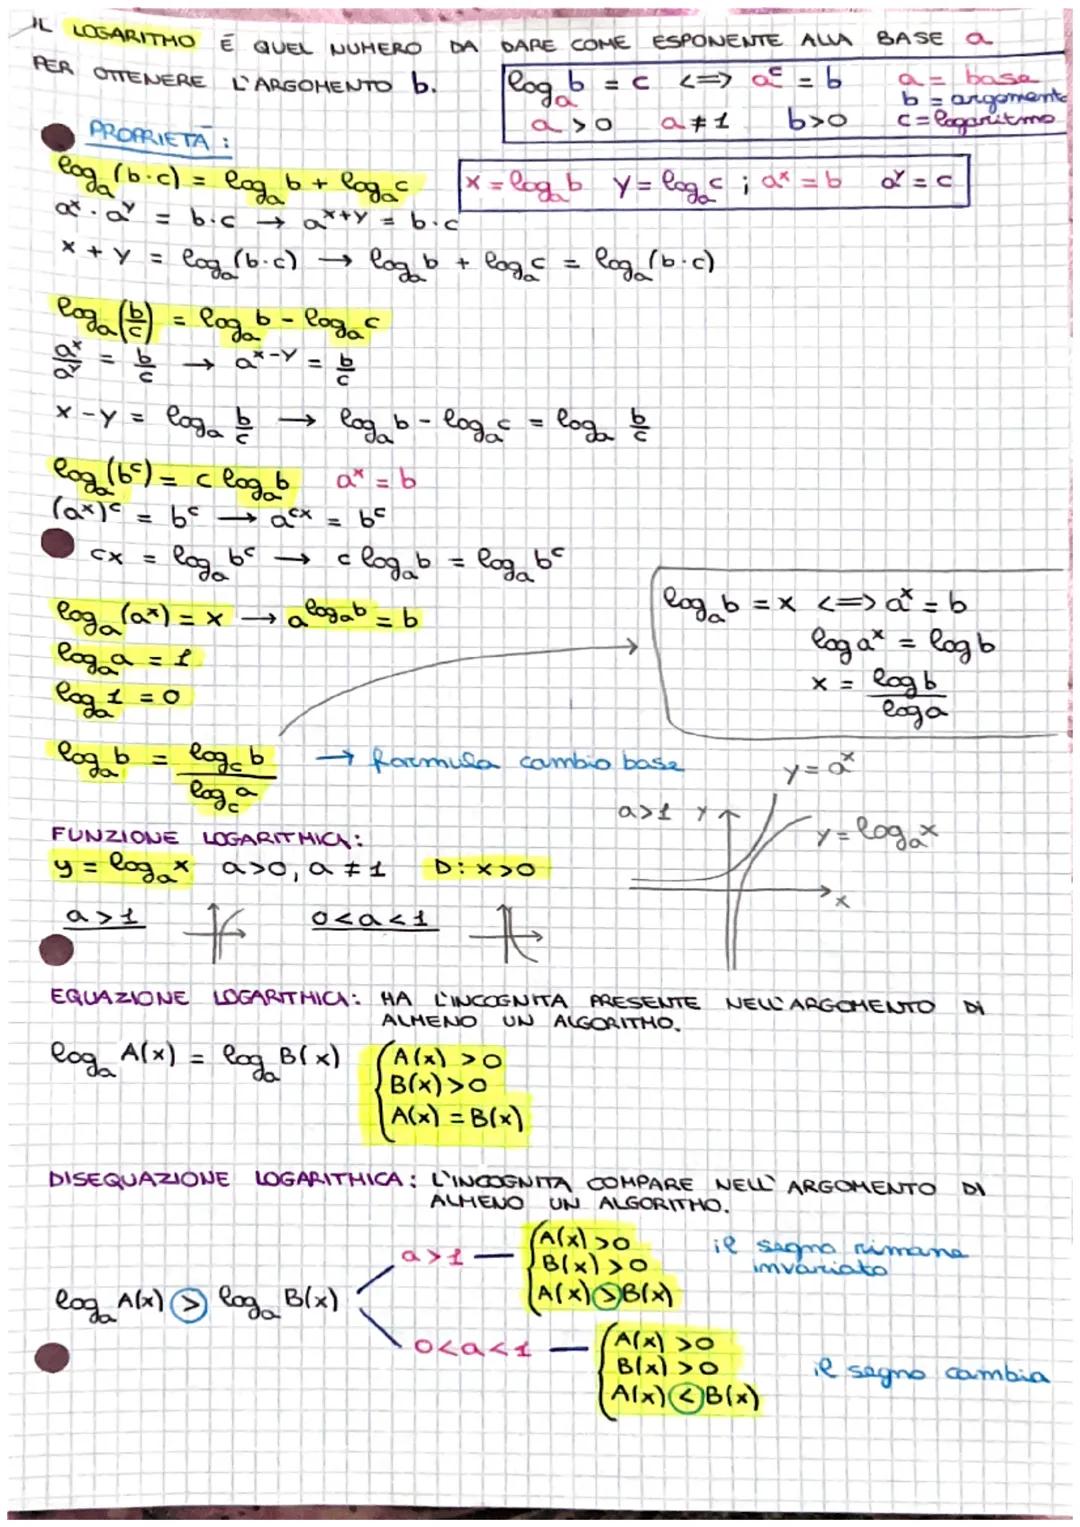 IL LOGARITMO É QUEL NUMERO DA DARE COME ESPONENTE ALLA BASE a
PER OTTENERE L'ARGOMENTO b.
logₐ b = c <=> aᶜ = b a = base
b = argomento
a > 0 a ≠ 1 b > 0 c = logaritmo
PROPRIETÀ:
logₐ (b·c) = logₐ b + logₐ c
x = logₐ b y = logₐ c ; aˣ = b aʸ = c
aˣ · aʸ = b·c → aˣ⁺ʸ = b·c
x + y = logₐ (b·c) → logₐ b + logₐ c = logₐ (b·c)
logₐ (b/c) = logₐ b - logₐ c
aˣ/aʸ = b/c → aˣ⁻ʸ = b/c
x - y = logₐ b/c → logₐ b - logₐ c = logₐ b/c
logₐ (bᶜ) = c logₐ b aˣ = b
(aˣ)ᶜ = bᶜ → aᶜˣ = bᶜ
cx = logₐ bᶜ → c logₐ b = logₐ bᶜ
logₐ (aˣ) = x → a^(logₐ b) = b
logₐ a = 1
logₐ 1 = 0
logₐ b = x <=> aˣ = b
log aˣ = log b
x = log b / log a
logₐ b = log_c b / log_c a → formula cambio base
y = aˣ
a>1 y
y = logₐ x
x
FUNZIONE LOGARITMICA:
y = logₐ x a>0, a ≠ 1 D: x>0
a > 1 0<a<1
EQUAZIONE LOGARITMICA: HA L'INCOGNITA PRESENTE NELL'ARGOMENTO DI
ALMENO UN ALGORITMO.
logₐ A(x) = logₐ B(x) { A(x) > 0
B(x) > 0
A(x) = B(x)
DISEQUAZIONE LOGARITMICA: L'INCOGNITA COMPARE NELL'ARGOMENTO DI
ALMENO UN ALGORITMO.
logₐ A(x) > logₐ B(x)
a > 1 — { A(x) > 0
B(x) > 0
A(x) > B(x)
il segno rimane
invariato
0<a<1 — { A(x) > 0
B(x) > 0
A(x) < B(x)
il segno cambia